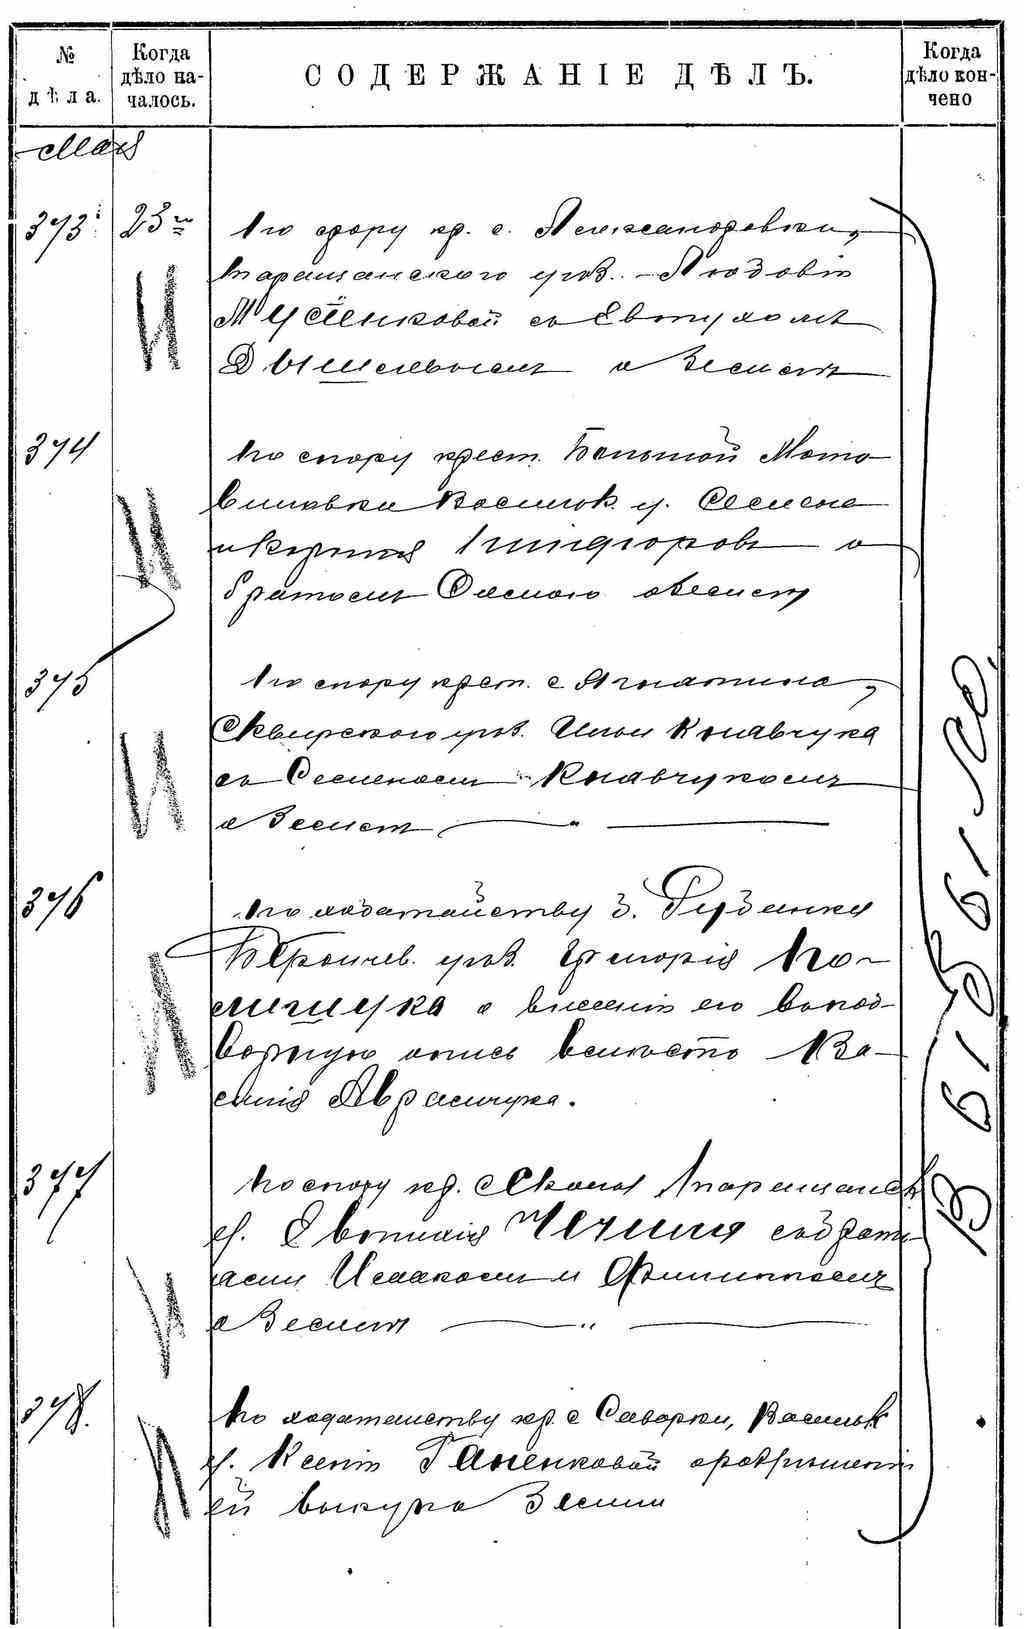 № дѣла.
Когда дѣло началось.
СОДЕРЖАНІЕ ДѢЛЪ.
Когда дѣло кончено
Мая
373. 23го По спору кр. с. Александровки,
Таращанскаго уѣз. Людовіи
Мустенковой съ Евтухомъ
Дышлевымъ о землѣ
374 По спору крест. Большой Мото-
виловки Васильк. у. Семена
и Корнія Никифоровъ о
братомъ Фомою о землѣ
375 По спору крест. с. Ягнатина,
Сквирскаго уѣз. Ильи Кравчука
съ Семеномъ Кравчукомъ
о землѣ
376 По ходатайству д.
Бердичев. уѣз. Григорія По-
лищука о внесеніи его въ под-
ворную опись вмѣсто Ва-
силія Аврамчука.
377 По спору кр. с. Таращанск
у. Евтихія съ брать-
ями Исаакомъ и Филиппомъ
о землѣ
378. По ходатайству кр. с. Саварки, Васильк
у. Ксеніи Ганенковой о разрѣшеніи
ей выкупа земли
И
И
И
И
И
И
В 61561